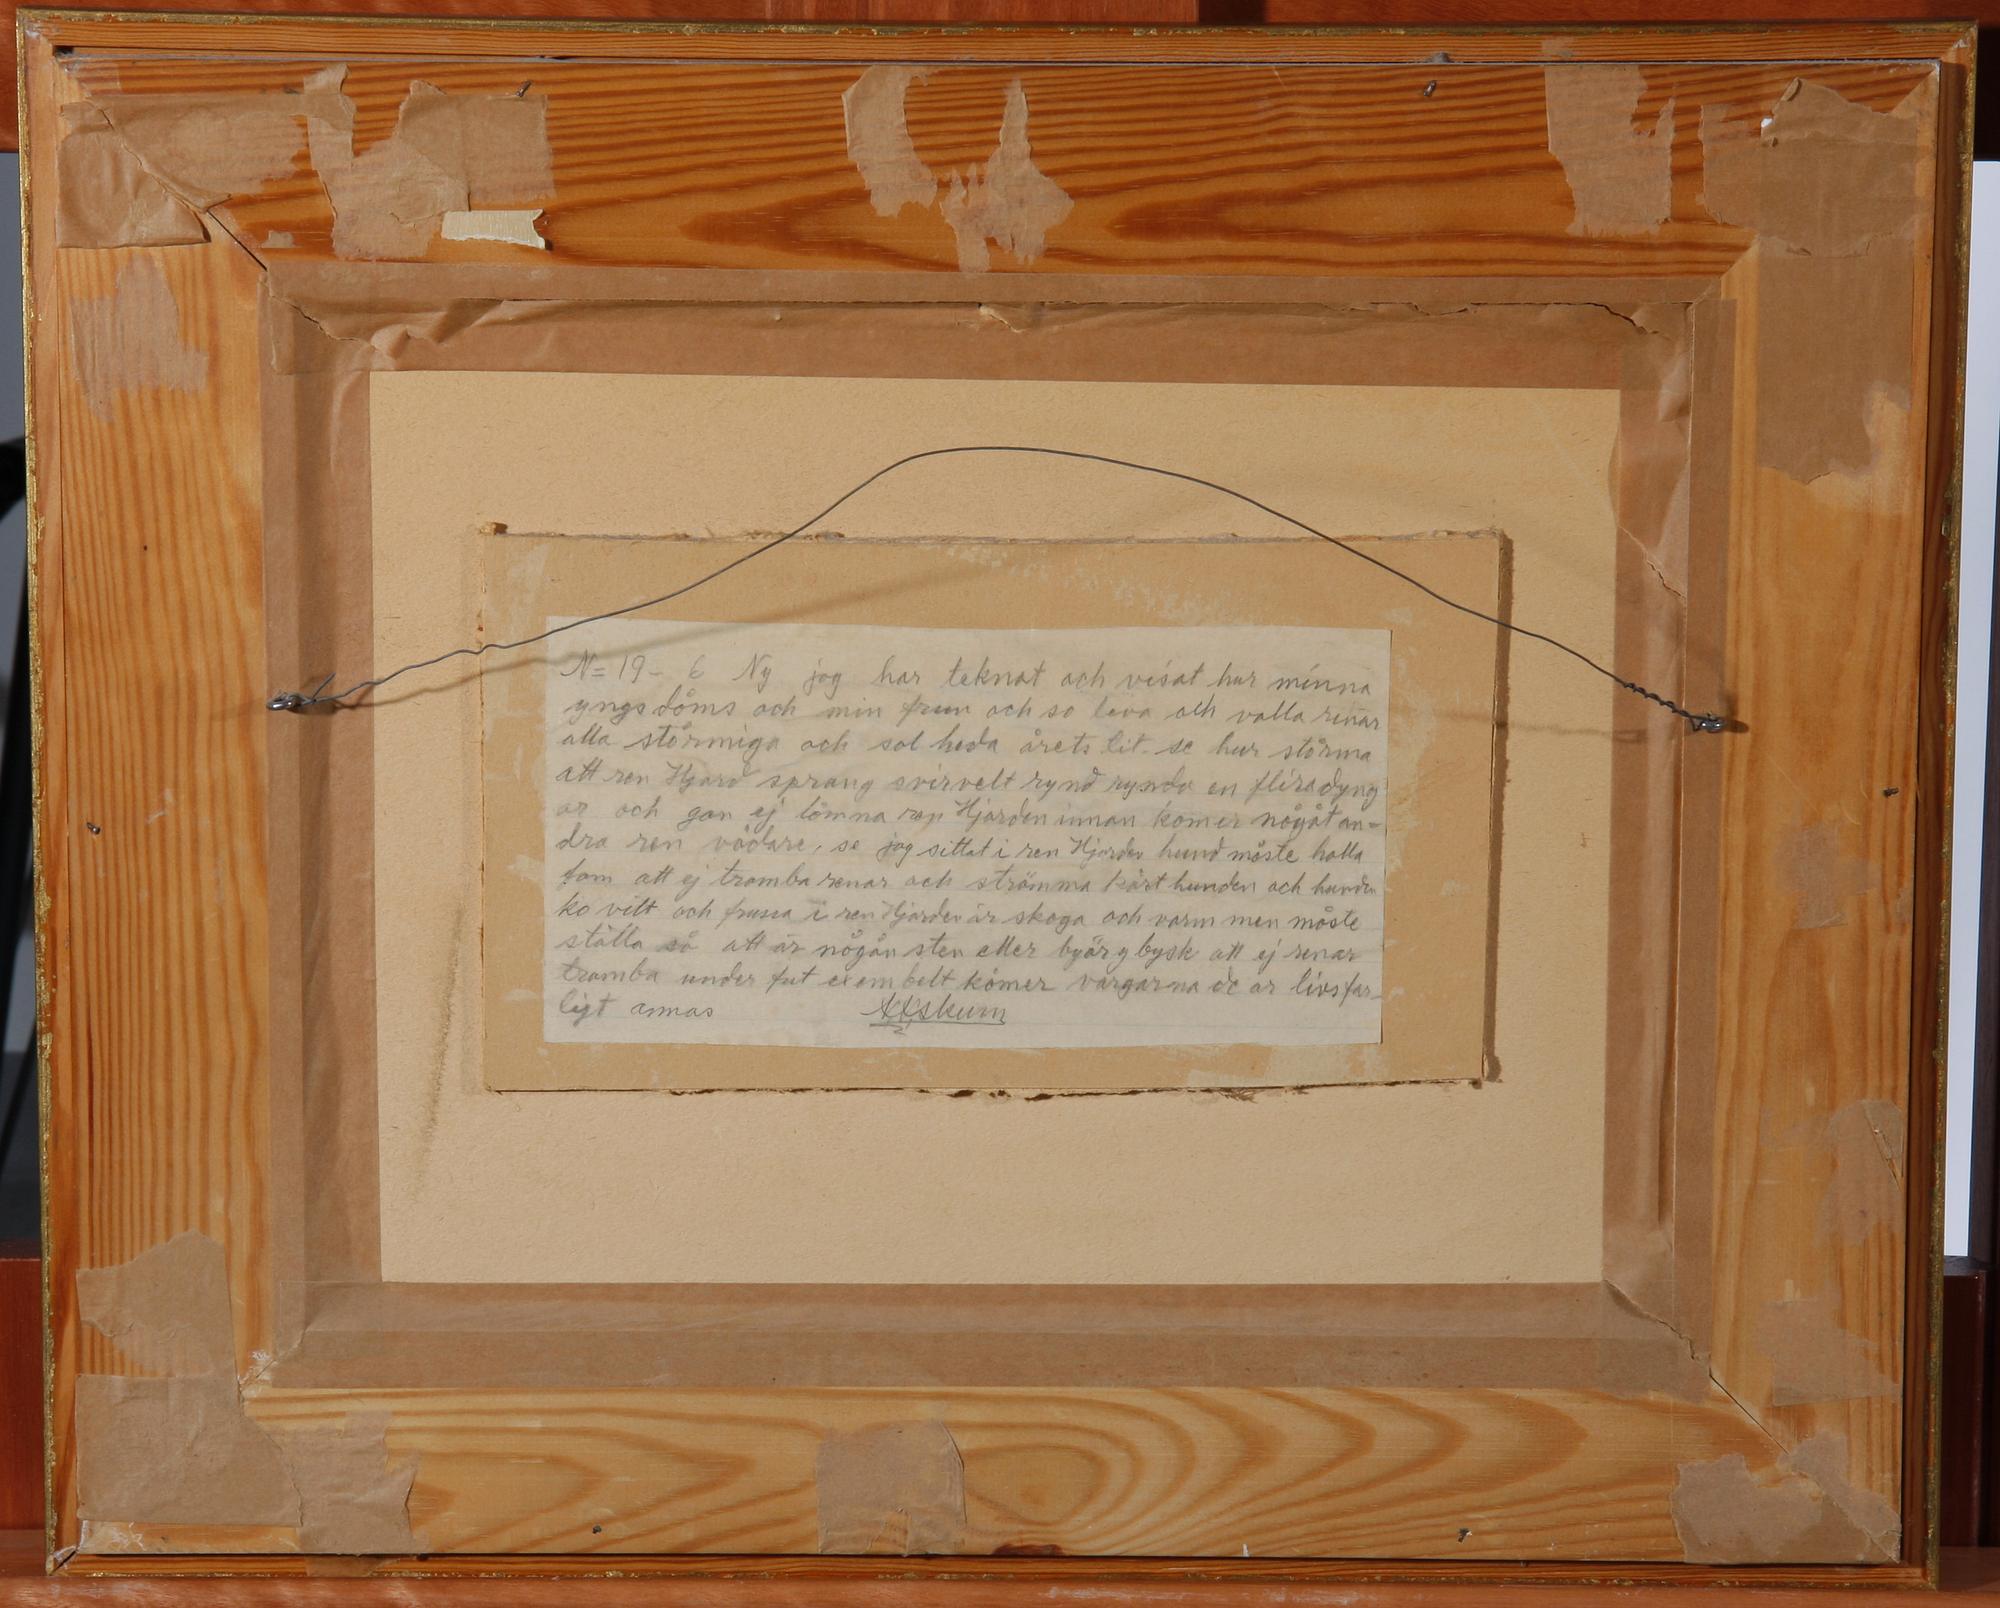 N= 19- 6 Ny jag har teknat och visat hur minna
yngsdoms och min frun och so leva och valla renar
alla störmiga och sol heda årets lit. se hur störma
att ren Hjord sprang svirvelt rynd rynda en fliradyng
ar och gan ej lömna ren Hjorden innan komer någåt an=
dra ren vödare, se jag sittat i ren Hjorden hund måste halla
fam att ej tramba renar och strömma kårt hunden och hunden
ko vilt och frusea i ren Hjorden är skoga och varm men måste
ställa så att är någån sten eller byörg bysk att ej renar
tramba under fut exembelt kömer vargarna de ar livsfar-
ligt annas Skum